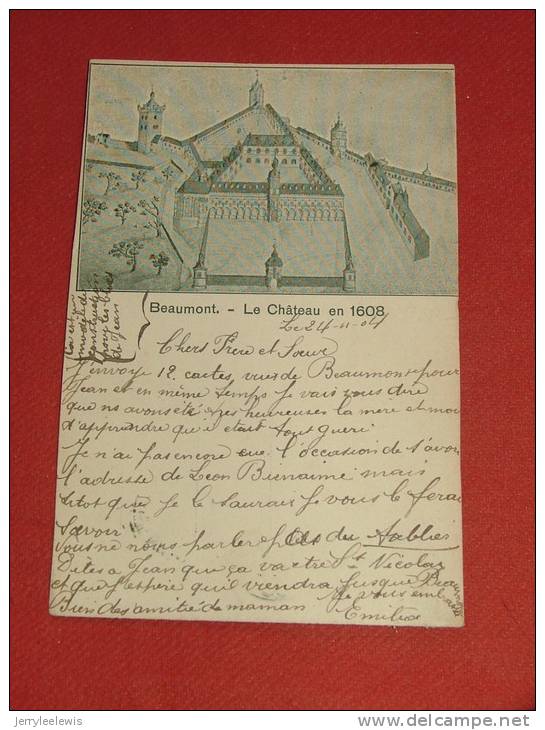 Beaumont. - Le Château en 1608
Le 24-11-04
Chers Frere et Soeur
J'envoye 12 cartes, vues de Beaumont pour
Jean et en même temps Je vais vous dire
que ns avons été heureuses la mere et moi
d'apprendre qu'il etait tout gueri
Je n'ai pas encore eue l'occasion de s'avoir
l'adresse de Leon Bienaimé mais
sitot que je le saurais Je vous le ferai
Savoir
Vous ne nous parler pas du Sablier
Dites a Jean que ça va etre St Nicolas
et que J'espere qu'il viendra Jusque Beaumont
Je vous embrasse
Bien des amitié de maman Emilia
modèle de
construction
pour les blocs
de Jean
jerryleelewis
www.delcampe.net